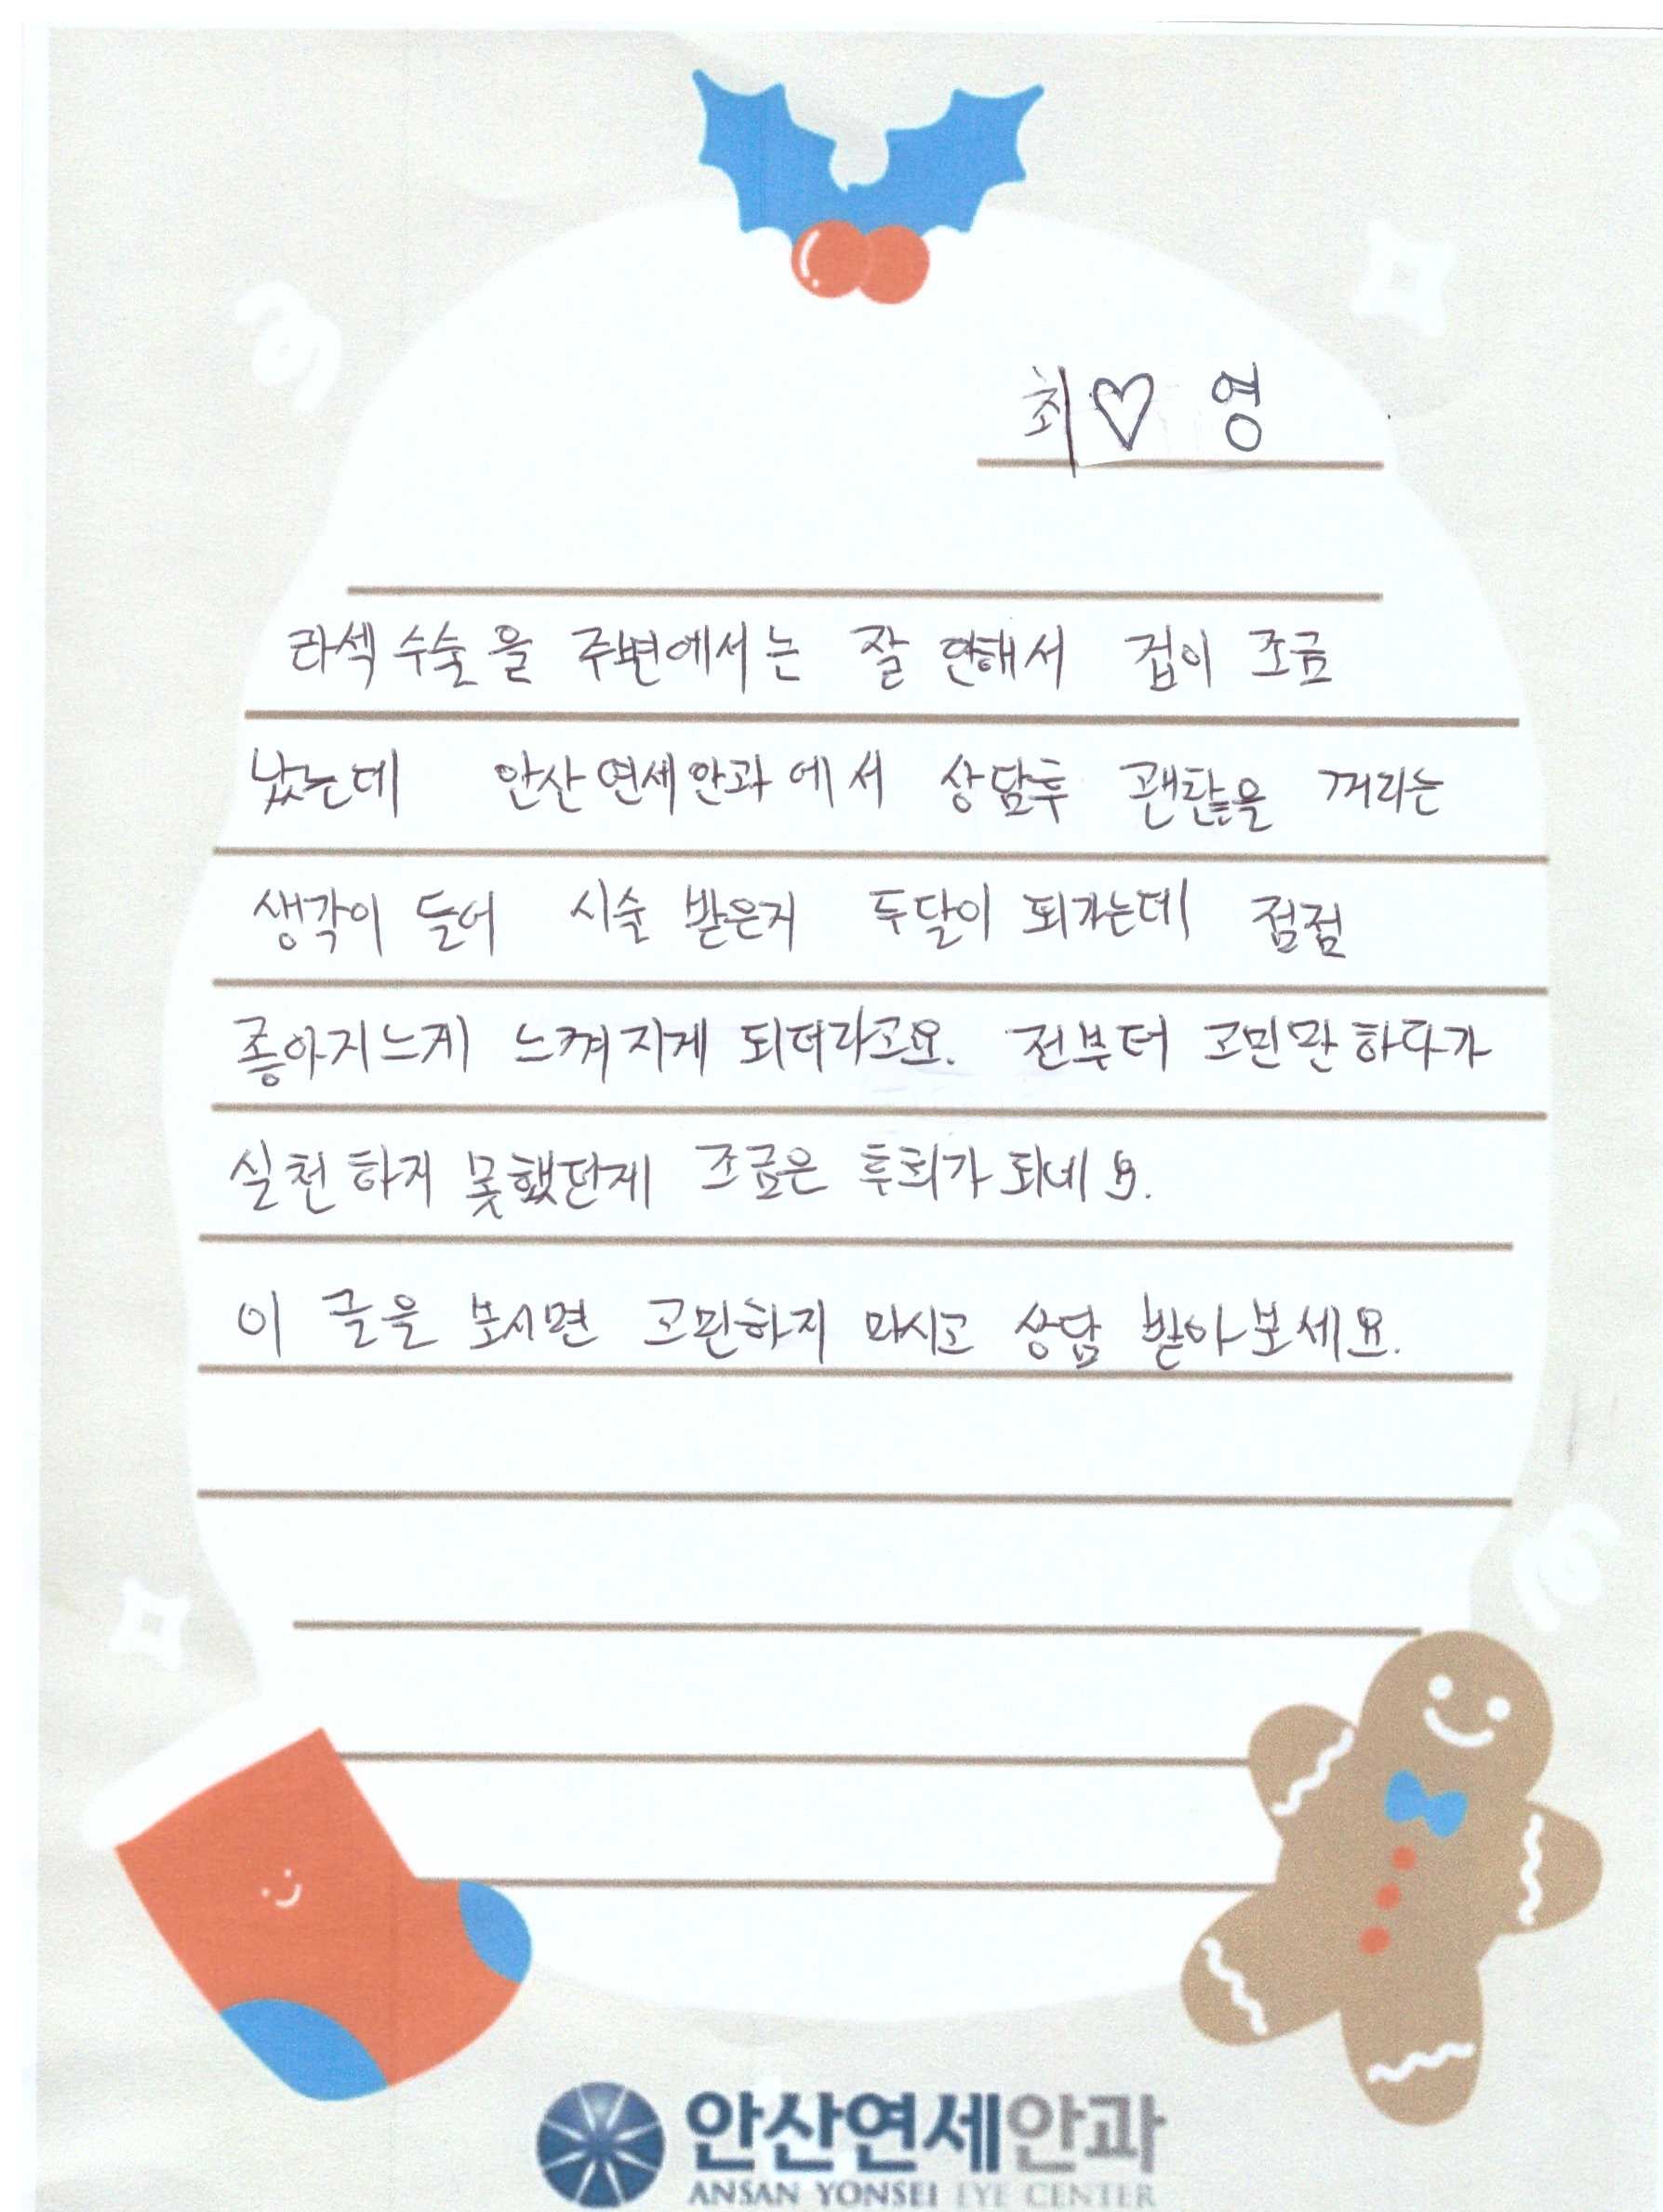 최♡영
라섹수술을 주변에서는 잘 안해서 겁이 조금
났는데 안산연세안과에서 상담후 괜찮을 꺼라는
생각이 들어 시술 받은지 두달이 되가는데 점점
좋아지느게 느껴지게 되더라고요. 전부터 고민만하다가
실천하지 못했단게 조금은 후회가 되네요.
이 글을 보시면 고민하지 마시고 상담 받아보세요.
안산연세안과
ANSAN YONSEI EYE CENTER